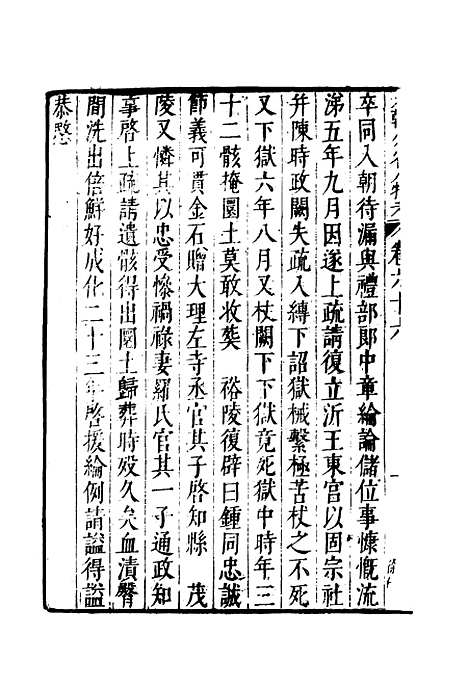 卷六十六
卒同入朝待漏與禮部郎中章綸論儲位事慷慨流
涕五年九月因遂上疏請復立沂王東宮以固宗社
并陳時政闕失疏入縛下詔獄械繫極苦杖之不死
又下獄六年八月又杖闕下下獄竟死獄中時年三
十二骸掩圜土莫敢收葬　裕陵復辟曰鍾同忠誠
節義可貫金石贈大理左寺丞官其子啓知縣　茂
陵又憐其以忠受慘禍祿妻羅氏官其一子通政知
事啓上疏請遺骸得出圜土歸葬時歿久矣血漬臀
間洗出倍鮮好成化二十三年啓援綸例請謚得謚
恭愍